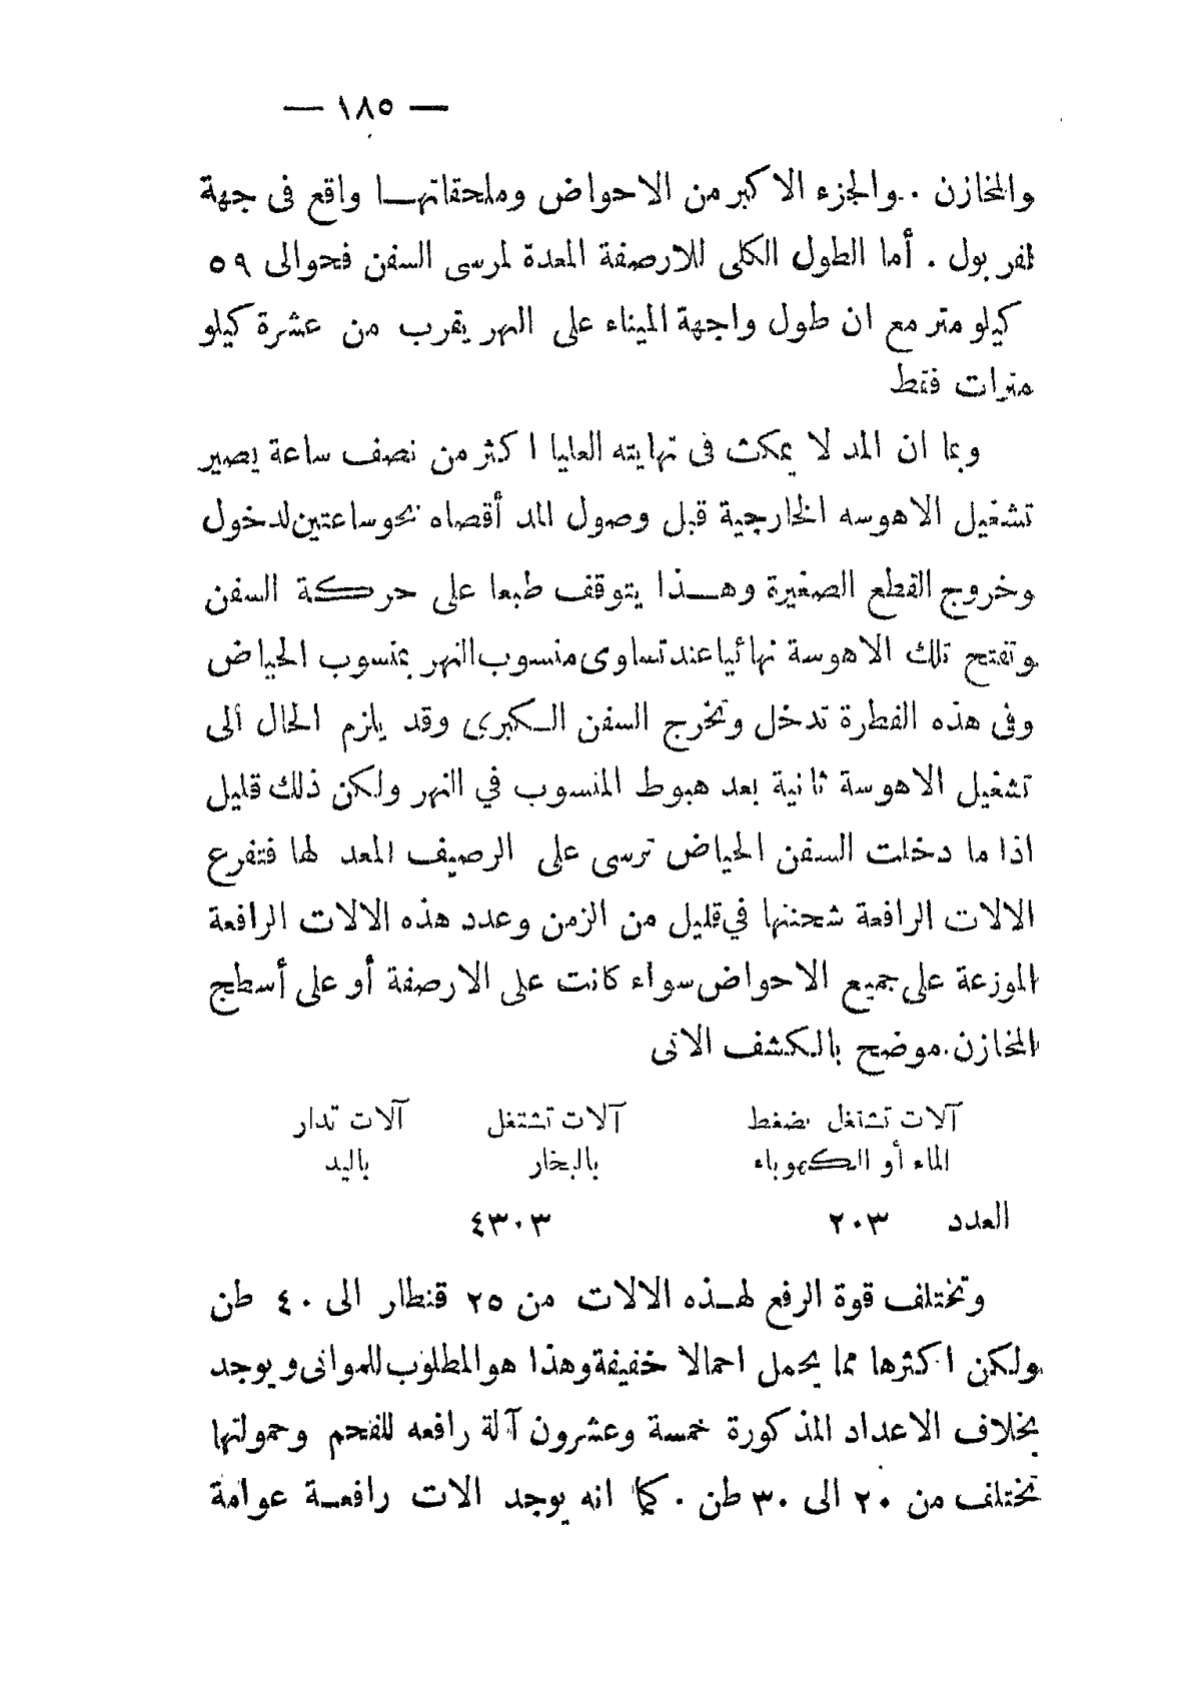 — ١٨٥ —
والمخازن . والجزء الاكبر من الاحواض وملحقاتهـا واقع فى جهة
لفربول . أما الطول الكلى للارصفة المعدة لمرسى السفن فحوالى ٥٩
كيلو متر مع ان طول واجهة الميناء على النهر يقرب من عشرة كيلو
مترات فقط
وبما ان المد لا يمكث فى نهايته العليا اكثر من نصف ساعة يصير
تشغيل الاهوسه الخارجية قبل وصول المد أقصاه بحو ساعتين لدخول
وخروج القطع الصغيرة وهـذا يتوقف طبعا على حركة السفن
وتفتح تلك الاهوسة نهائيا عند تساوى منسوب النهر بمنسوب الحياض
وفى هذه الفطرة تدخل وتخرج السفن الـكبرى وقد يلزم الحال ألى
تشغيل الاهوسة ثانية بعد هبوط المنسوب في النهر ولكن ذلك قليل
اذا ما دخلت السفن الحياض ترسى على الرصيف المعد لها فتفرع
الالات الرافعة شحنتها في قليل من الزمن وعدد هذه الالات الرافعة
الموزعة على جميع الاحواض سواء كانت على الارصفة أو على أسطح
المخازن موضح بالكشف الاتى
آلات تشتغل بضغط آلات تشتغل آلات تدار
الماء أو الكهرباء بالبخار باليد
العدد ٢٠٣ ٤٣٠٣
وتختلف قوة الرفع لهـذه الالات من ٢٥ قنطار الى ٤٠ طن
ولكن اكثرها مما يحمل احمالا خفيفة وهذا هو المطلوب للموانى ويوجد
بخلاف الاعداد المذكورة خمسة وعشرون آلة رافعه للفحم وحمولتها
تختلف من ٢٠ الى ٣٠ طن . كما انه يوجد الات رافعـة عوامة